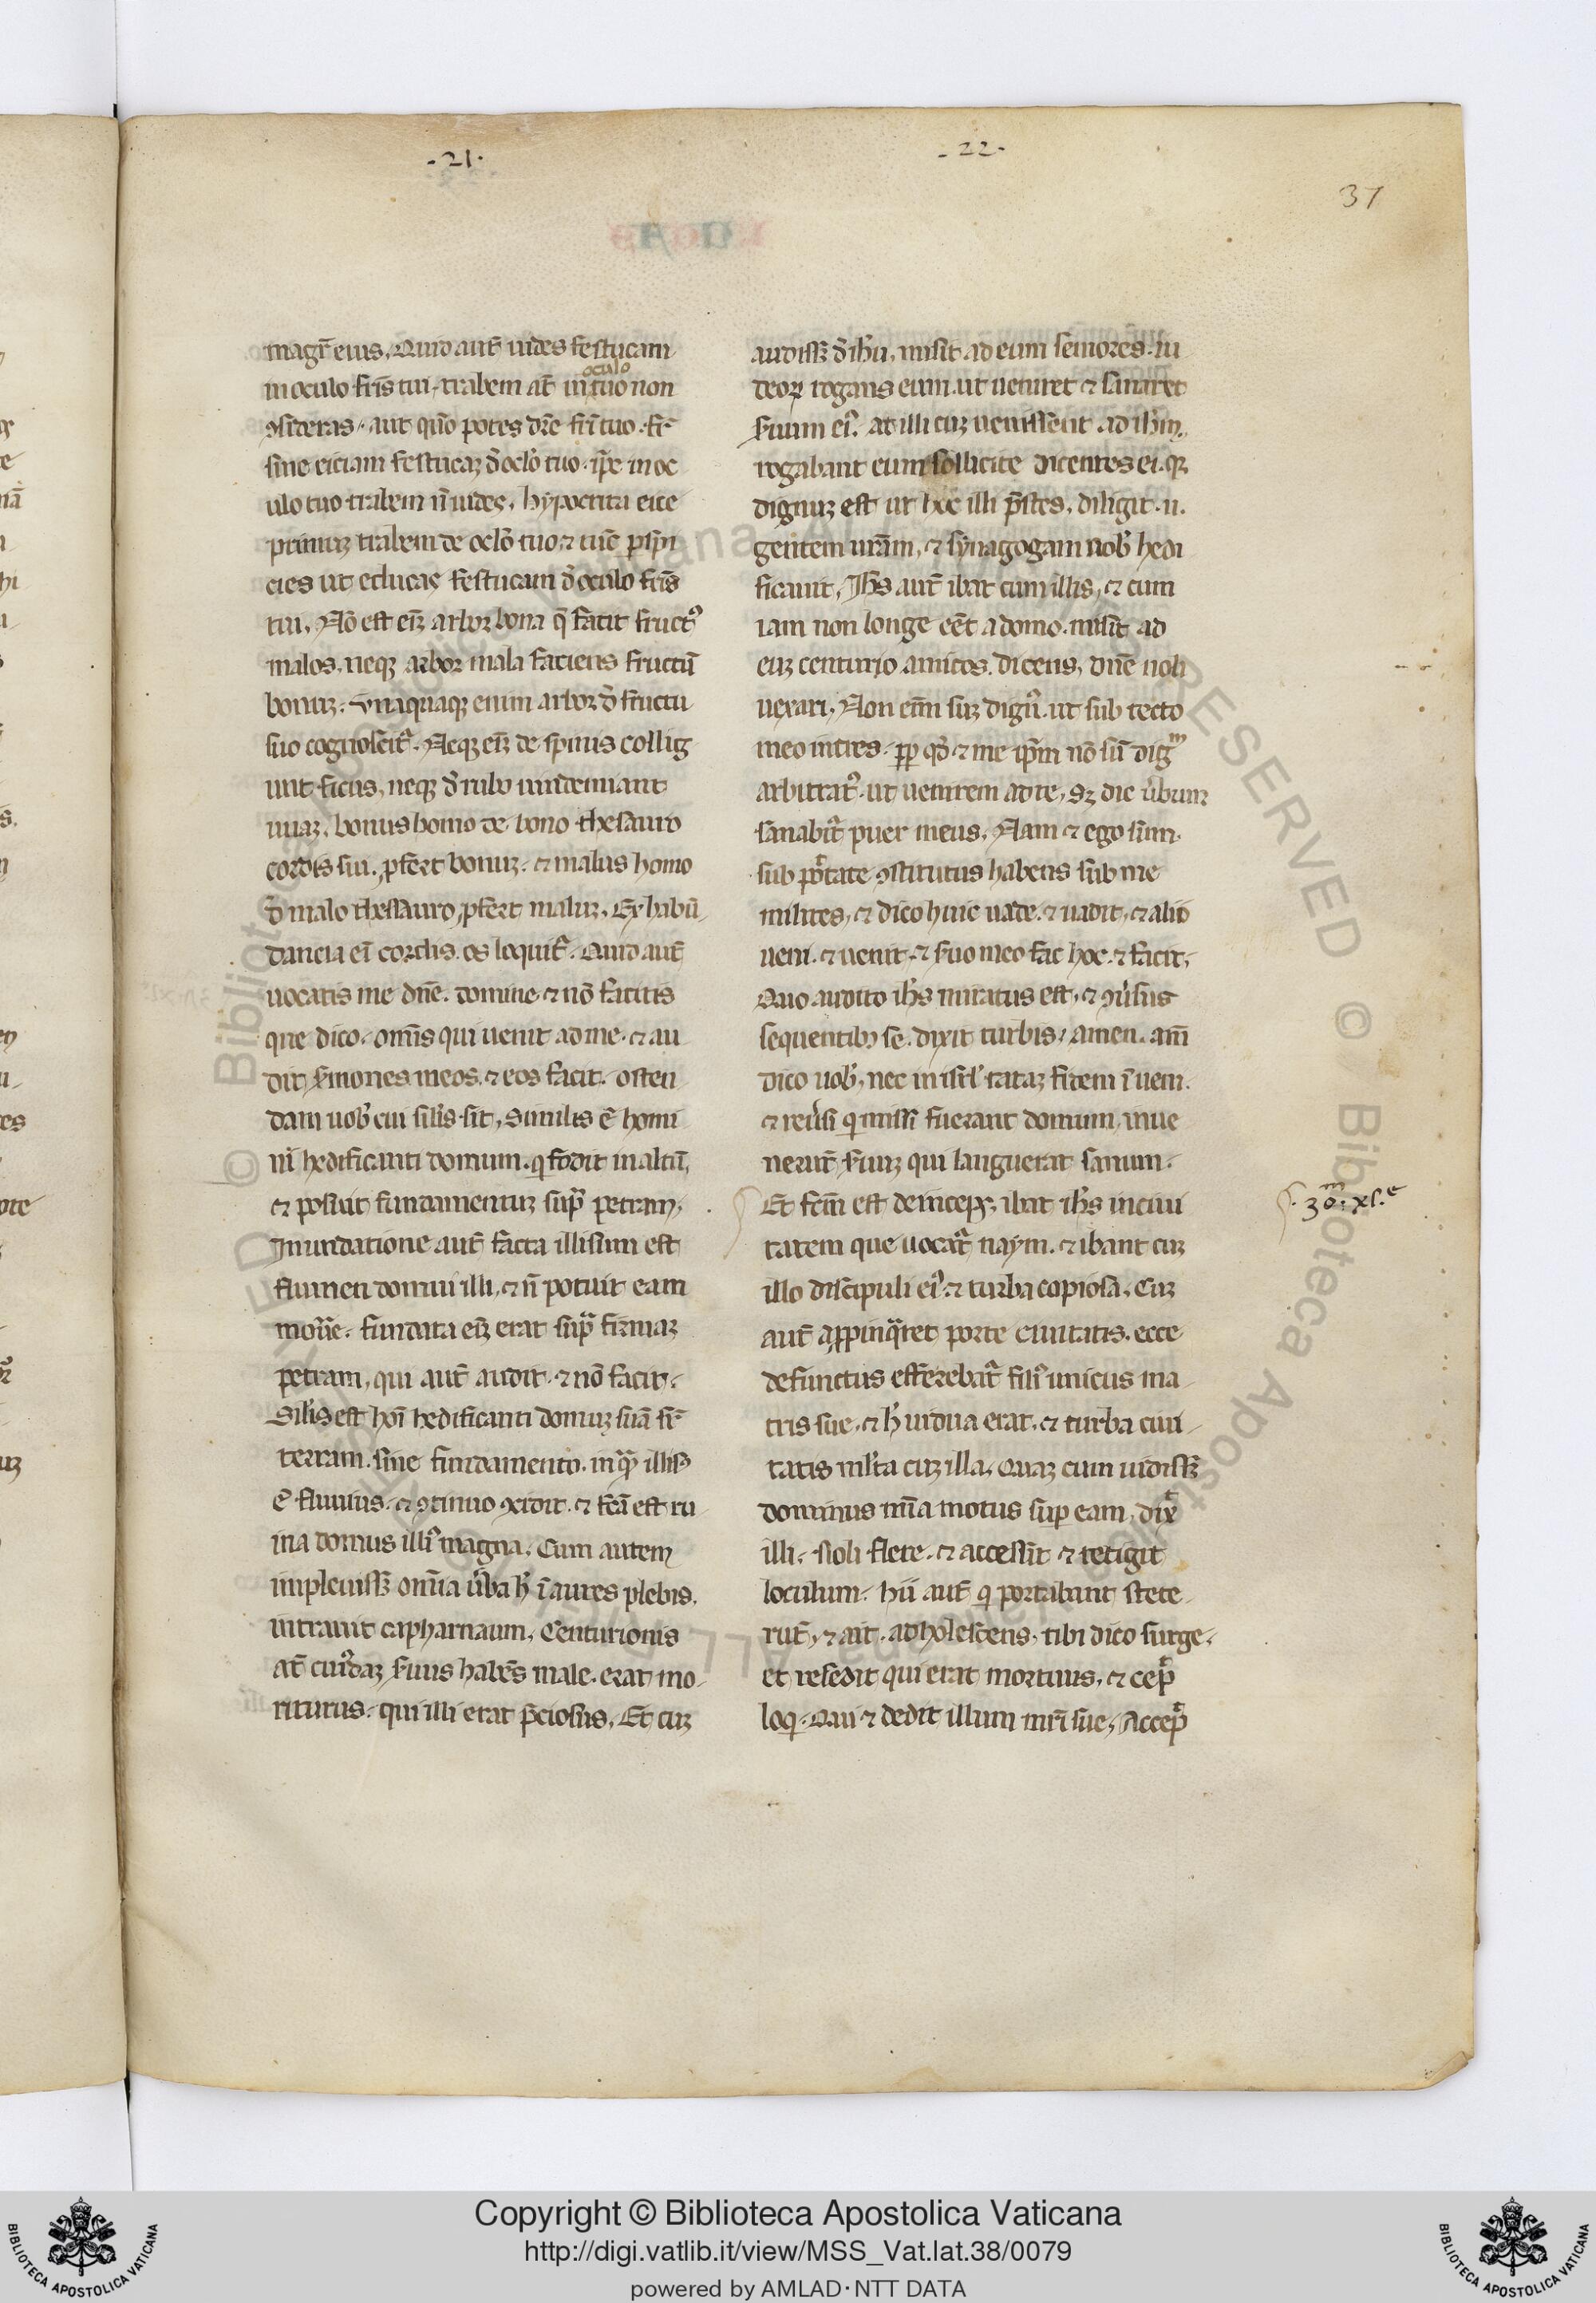 -21-
-22-
37
magr̄ eius. Quid aut̄ uides festucam
in oculo fr̄is tui. trabem at̄ in oculo tuo non
ꝯsideras. aut qūo potes dr̄e fr̄i tuo. fr̄
sine eiciam festucaꝫ đ oclo tuo. ip̄e in oc
ulo tuo trabem n̄ uides. hypocrita eice
primuꝫ trabem de oclo tuo. ⁊ tūc ꝑspi
cies ut educas festucam đ oculo fr̄is
tui. Nō est eīꝫ arbor bona q̄ facit fructꝰ
malos. neqꝫ arbor mala faciens fructū
bonuꝫ. vnaquaqꝫ enim arbor đ fructu
suo cognoscit᷑. Neqꝫ eīꝫ de spinis collig
unt ficus. neqꝫ đ rubo uindemiant
uuaꝫ. bonus homo de bono thesauro
cordis sui. ꝓfert bonuꝫ. ⁊ malus homo
đ malo thesauro ꝓfert maluꝫ. Ex habū
dancia eī cordis. os loquit᷑. Quid aut̄
uocatis me dn̄e. domine ⁊ nō facitis
que dico. omīs qui uenit ad me. ⁊ au
dit s̄mones meos. ⁊ eos facit. osten
dam uob̄ cui sil̄is sit. Similis ē homi
ni hedificanti domum. q̇ fodit in altū.
⁊ posuit fundamentuꝫ sup̄ petram.
Inundatione aut̄ facta illisum est
flumen domui illi. ⁊ n̄ potuit eam
mou̓e. fundata eīꝫ erat sup̄ firmaꝫ
petram. qui aut̄ audit. ⁊ nō facit.
Sil̄is est hōi hedificanti domuꝫ suā sr̄
terram. sine fundamento. in quā illis̄
ē fluuius. ⁊ ꝯtinuo ꝯcidit. ⁊ fc̄a est ru
ina domus illiꝰ magna. Cum autem
impleuissꝫ omīa u̓ba h̄ ī aures plebis.
intrauit capharnaum. Centurionis
at̄ cuiꝰdaꝫ s̄uus habēs male. erat mo
riturus. qui illi erat p̄ciosus. Et cuꝫ
audissꝫ đ ih̄u. misit ad eum seniores iu
deoꝝ rogans eum. ut ueniret ⁊ sanaret
s̄uum eiꝰ. at illi cuꝫ uenissent ad ih̄m.
rogabant eum sollicite dicentes ei. qꝫ
dignuꝫ est ut hoc illi p̄stes. diligit .n.
gentem nr̄am. ⁊ synagogam nob̄ hedi
ficauit. Ih̄s aut̄ ibat cum illis. ⁊ cum
iam non longe eēt a domo. misit ad
euꝫ centurio amicos. dicens. dn̄e noli
uexari. Non eīm suꝫ digū. ut sub tecto
meo intres. ꝓp̄ qđ ⁊ me ip̄m nō sū digm
arbitratꝰ. ut uenirem ad te. sꝫ dic u̓bum
sanabit᷑ puer meus. Nam ⁊ ego sum
sub po̓tate ꝯstitutus habens sub me
milites. ⁊ dico huic uade. ⁊ uadit. ⁊ alio
ueni. ⁊ uenit. ⁊ s̄uo meo fac hoc. ⁊ facit.
Quo audito ih̄s miratus est. ⁊ ꝯu̓sus
sequentibꝫ se. dixit turbis. amen. am̄
dico uob̄. nec in isr̄l tantaꝫ fidem īueni.
⁊ reu̓si q̇ missi fuerant domum. inue
nerut̄ s̄uuꝫ qui languerat sanum.
Et fc̄m est deinceps. ibat ih̄s in ciui
tatem que uocat᷑ naym. ⁊ ibant cuꝫ
illo discipuli eiꝰ ⁊ turba copiosa. Cuꝫ
aut̄ aꝓpinq̄ret porte ciuitatis. ecce
defunctus efferebat᷑ filiꝰ unicus ma
tris sue. ⁊ h̄ uidua erat. ⁊ turba ciui
tatis ml̄ta cuꝫ illa. Quaꝫ cum uidissꝫ
dominus mīa motus sup eam. dix̄
illi. Noli flere. ⁊ accessit ⁊ tetigit
loculum. hii aut̄ q̇ portabant stete
rut̄. ⁊ ait. adholescens. tibi dico surge.
et resedit qui erat mortuus. ⁊ cep̄
loq̇. Qui ⁊ dedit illum mr̄i sue. Accep̄
Copyright © Biblioteca Apostolica Vaticana
http://digi.vatlib.it/view/MSS_Vat.lat.38/0079
powered by AMLAD·NTT DATA
BIBLIOTECA APOSTOLICA VATICANA
BIBLIOTECA APOSTOLICA VATICANA